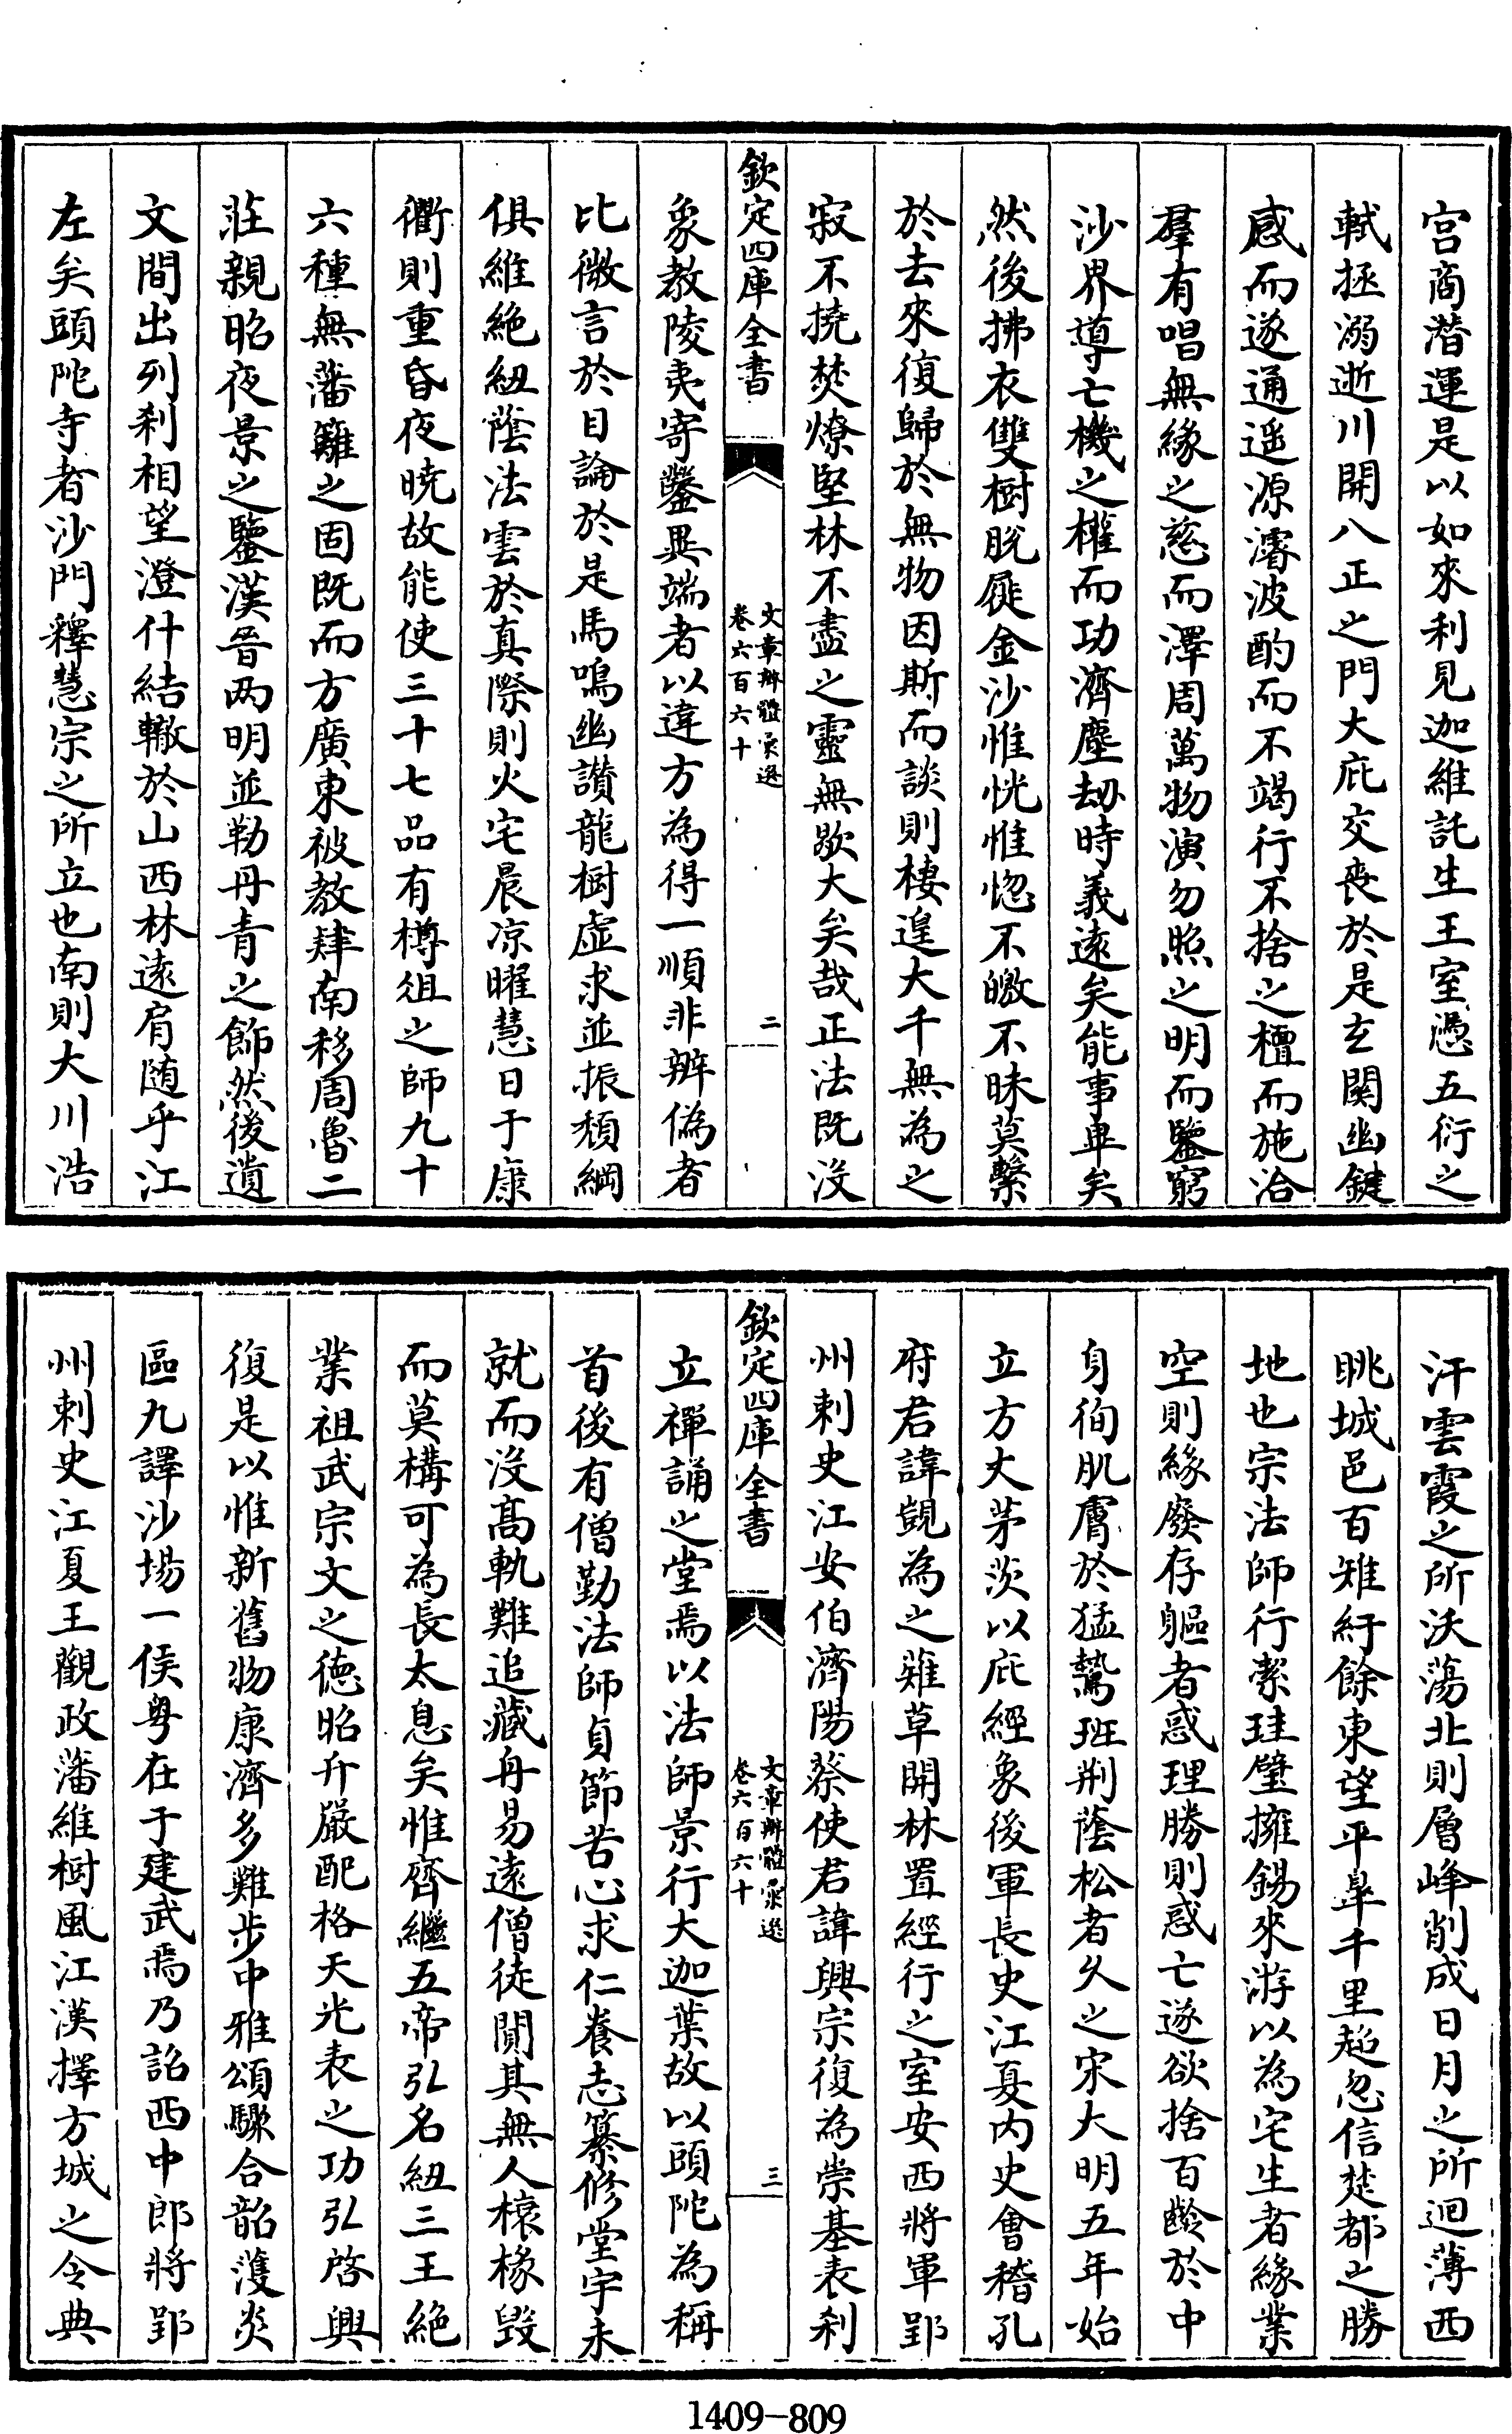 宫商潛運是以如來利見迦維託生王室憑五衍之
軾拯溺逝川開八正之門大庇交喪於是玄關幽鍵
感而遂通遥源濬波酌而不竭行不捨之檀而施洽
羣有唱無緣之慈而澤周萬物演勿照之明而鑒窮
沙界導亡機之權而功濟塵劫時義遠矣能事畢矣
然後拂衣雙樹脱屣金沙惟恍惟惚不皦不昧莫繫
於去來復歸於無物因斯而談則棲遑大千無為之
寂不撓焚燎堅林不盡之靈無歇大矣哉正法既没
欽定四庫全書
文章辨體彙選
卷六百六十
二
象教陵夷穿鑿異端者以違方為得一順非辨偽者
比微言於目論於是馬鳴幽讚龍樹虚求並振頹綱
俱維絶紐蔭法雲於真際則火宅晨凉曜慧日于康
衢則重昏夜曉故能使三十七品有樽俎之師九十
六種無藩籬之固既而方廣東被教肄南移周魯二
莊親昭夜景之鑒漢晉兩明並勒丹青之飾然後遺
文間出列刹相望澄什結轍於山西林遠肩随乎江
左矣頭陀寺者沙門釋慧宗之所立也南則大川浩
汗雲霞之所沃蕩北則層峰削成日月之所迴薄西
眺城邑百雉紆餘東望平皋千里超忽信楚都之勝
地也宗法師行潔珪璧擁錫來游以為宅生者緣業
空則緣廢存軀者惑理勝則惑亡遂欲捨百齡於中
身徇肌膚於猛鷙班荆蔭松者久之宋大明五年始
立方丈茅茨以庇經象後軍長史江夏内史會稽孔
府君諱覬為之薙草開林置經行之室安西將軍郢
州刺史江安伯濟陽蔡使君諱興宗復為崇基表刹
欽定四庫全書
文章辨體彙選
卷六百六十
三
立禪誦之堂焉以法師景行大迦葉故以頭陀為稱
首後有僧勤法師貞節苦心求仁養志纂修堂宇未
就而没高軌難追藏舟易遠僧徒閴其無人榱椽毁
而莫構可為長太息矣惟齊繼五帝弘名紐三王絶
業祖武宗文之德昭升嚴配格天光表之功弘啓興
復是以惟新舊物康濟多難步中雅頌驟合韶濩炎
區九譯沙場一候粤在于建武焉乃詔西中郎將郢
州刺史江夏王觀政藩維樹風江漢擇方城之令典
1409-809